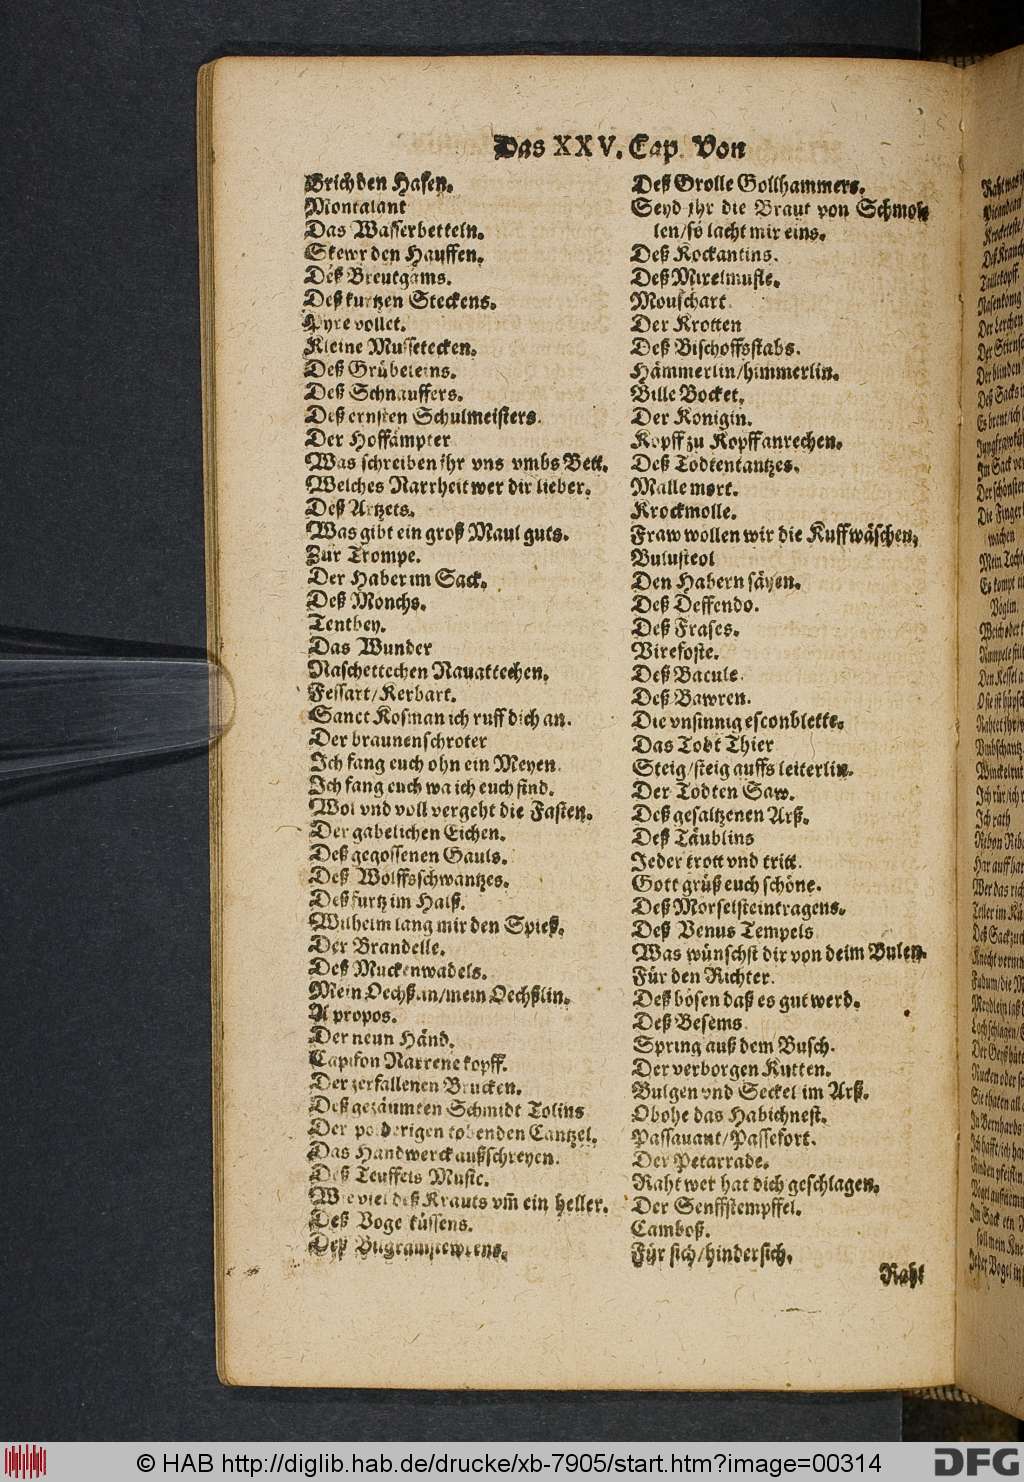 Das XXV. Cap. Von
Brich den Hafen.
Montalant
Das Wasserbetteln.
Skewr den Hauffen.
Deß Breutgams.
Deß kurtzen Steckens.
Pyre vollet.
Kleine Mussetecken.
Deß Grübeleins.
Deß Schnauffers.
Deß ernsten Schulmeisters.
Der Hoffämpter
Was schreiben jhr vns vmbs Bett.
Welches Narrheit wer dir lieber.
Deß Artzets.
Was gibt ein groß Maul guts.
Zur Trompe.
Der Haber im Sack.
Deß Monchs.
Tentbey.
Das Wunder
Naschettechen Nauattechen.
Fessart/Kerbart.
Sanct Kosman ich ruff dich an.
Der braunenschroter
Ich fang euch ohn ein Meyen.
Ich fang euch wa ich euch find.
Wol vnd voll vergeht die Fasten.
Der gabelichen Eichen.
Deß gegossenen Gauls.
Deß Wolffsschwantzes.
Deß furtz im Halß.
Wilhelm lang mir den Spieß.
Der Brandelle.
Deß Muckenwadels.
Mein Oechßlin/mein Oechßlin.
A propos.
Der neun Händ.
Capifon Narrene kopff.
Der zerfallenen Brucken.
Deß gezäumten Schmidt Tolins
Der polderigen tobenden Cantzel.
Das Handwerck außschreyen.
Deß Teuffels Music.
Wie viel deß Krauts vm̃ ein heller.
Deß Voge küssens.
Deß Bilgramstewrens.
Deß Grolle Gollhammers.
Seyd jhr die Braut von Schmol-
len/so lacht mir eins.
Deß Kockantins.
Deß Mirelmusle.
Mouschart
Der Krotten
Deß Bischoffsstabs.
Hämmerlin/himmerlin.
Bille Bocket.
Der Konigin.
Kopff zu Kopff anrechen.
Deß Todtentantzes.
Malle mort.
Krockmolle.
Fraw wollen wir die Kuff wäschen.
Bulusteol
Den Habern säyen.
Deß Deffendo.
Deß Frases.
Virefoste.
Deß Bacule.
Deß Bawren.
Die vnsinnig esconblette.
Das Todt Thier
Steig/steig auffs leiterlin.
Der Todten Saw.
Deß gesaltzenen Arß.
Deß Täublins
Jeder trott vnd tritt.
Gott grüß euch schöne.
Deß Morselsteintragens.
Deß Venus Tempels
Was wünschst dir von deim Bulen.
Für den Richter.
Deß bösen daß es gut werd.
Deß Besems
Spring auß dem Busch.
Der verborgen Kutten.
Bulgen vnd Seckel im Arß.
Obohe das Habichnest.
Passauant/Passefort.
Der Petarrade.
Raht wer hat dich geschlagen.
Der Senffstempffel.
Camboß.
Für sich/hindersich.
Raht
© HAB http://diglib.hab.de/drucke/xb-7905/start.htm?image=00314
DFG